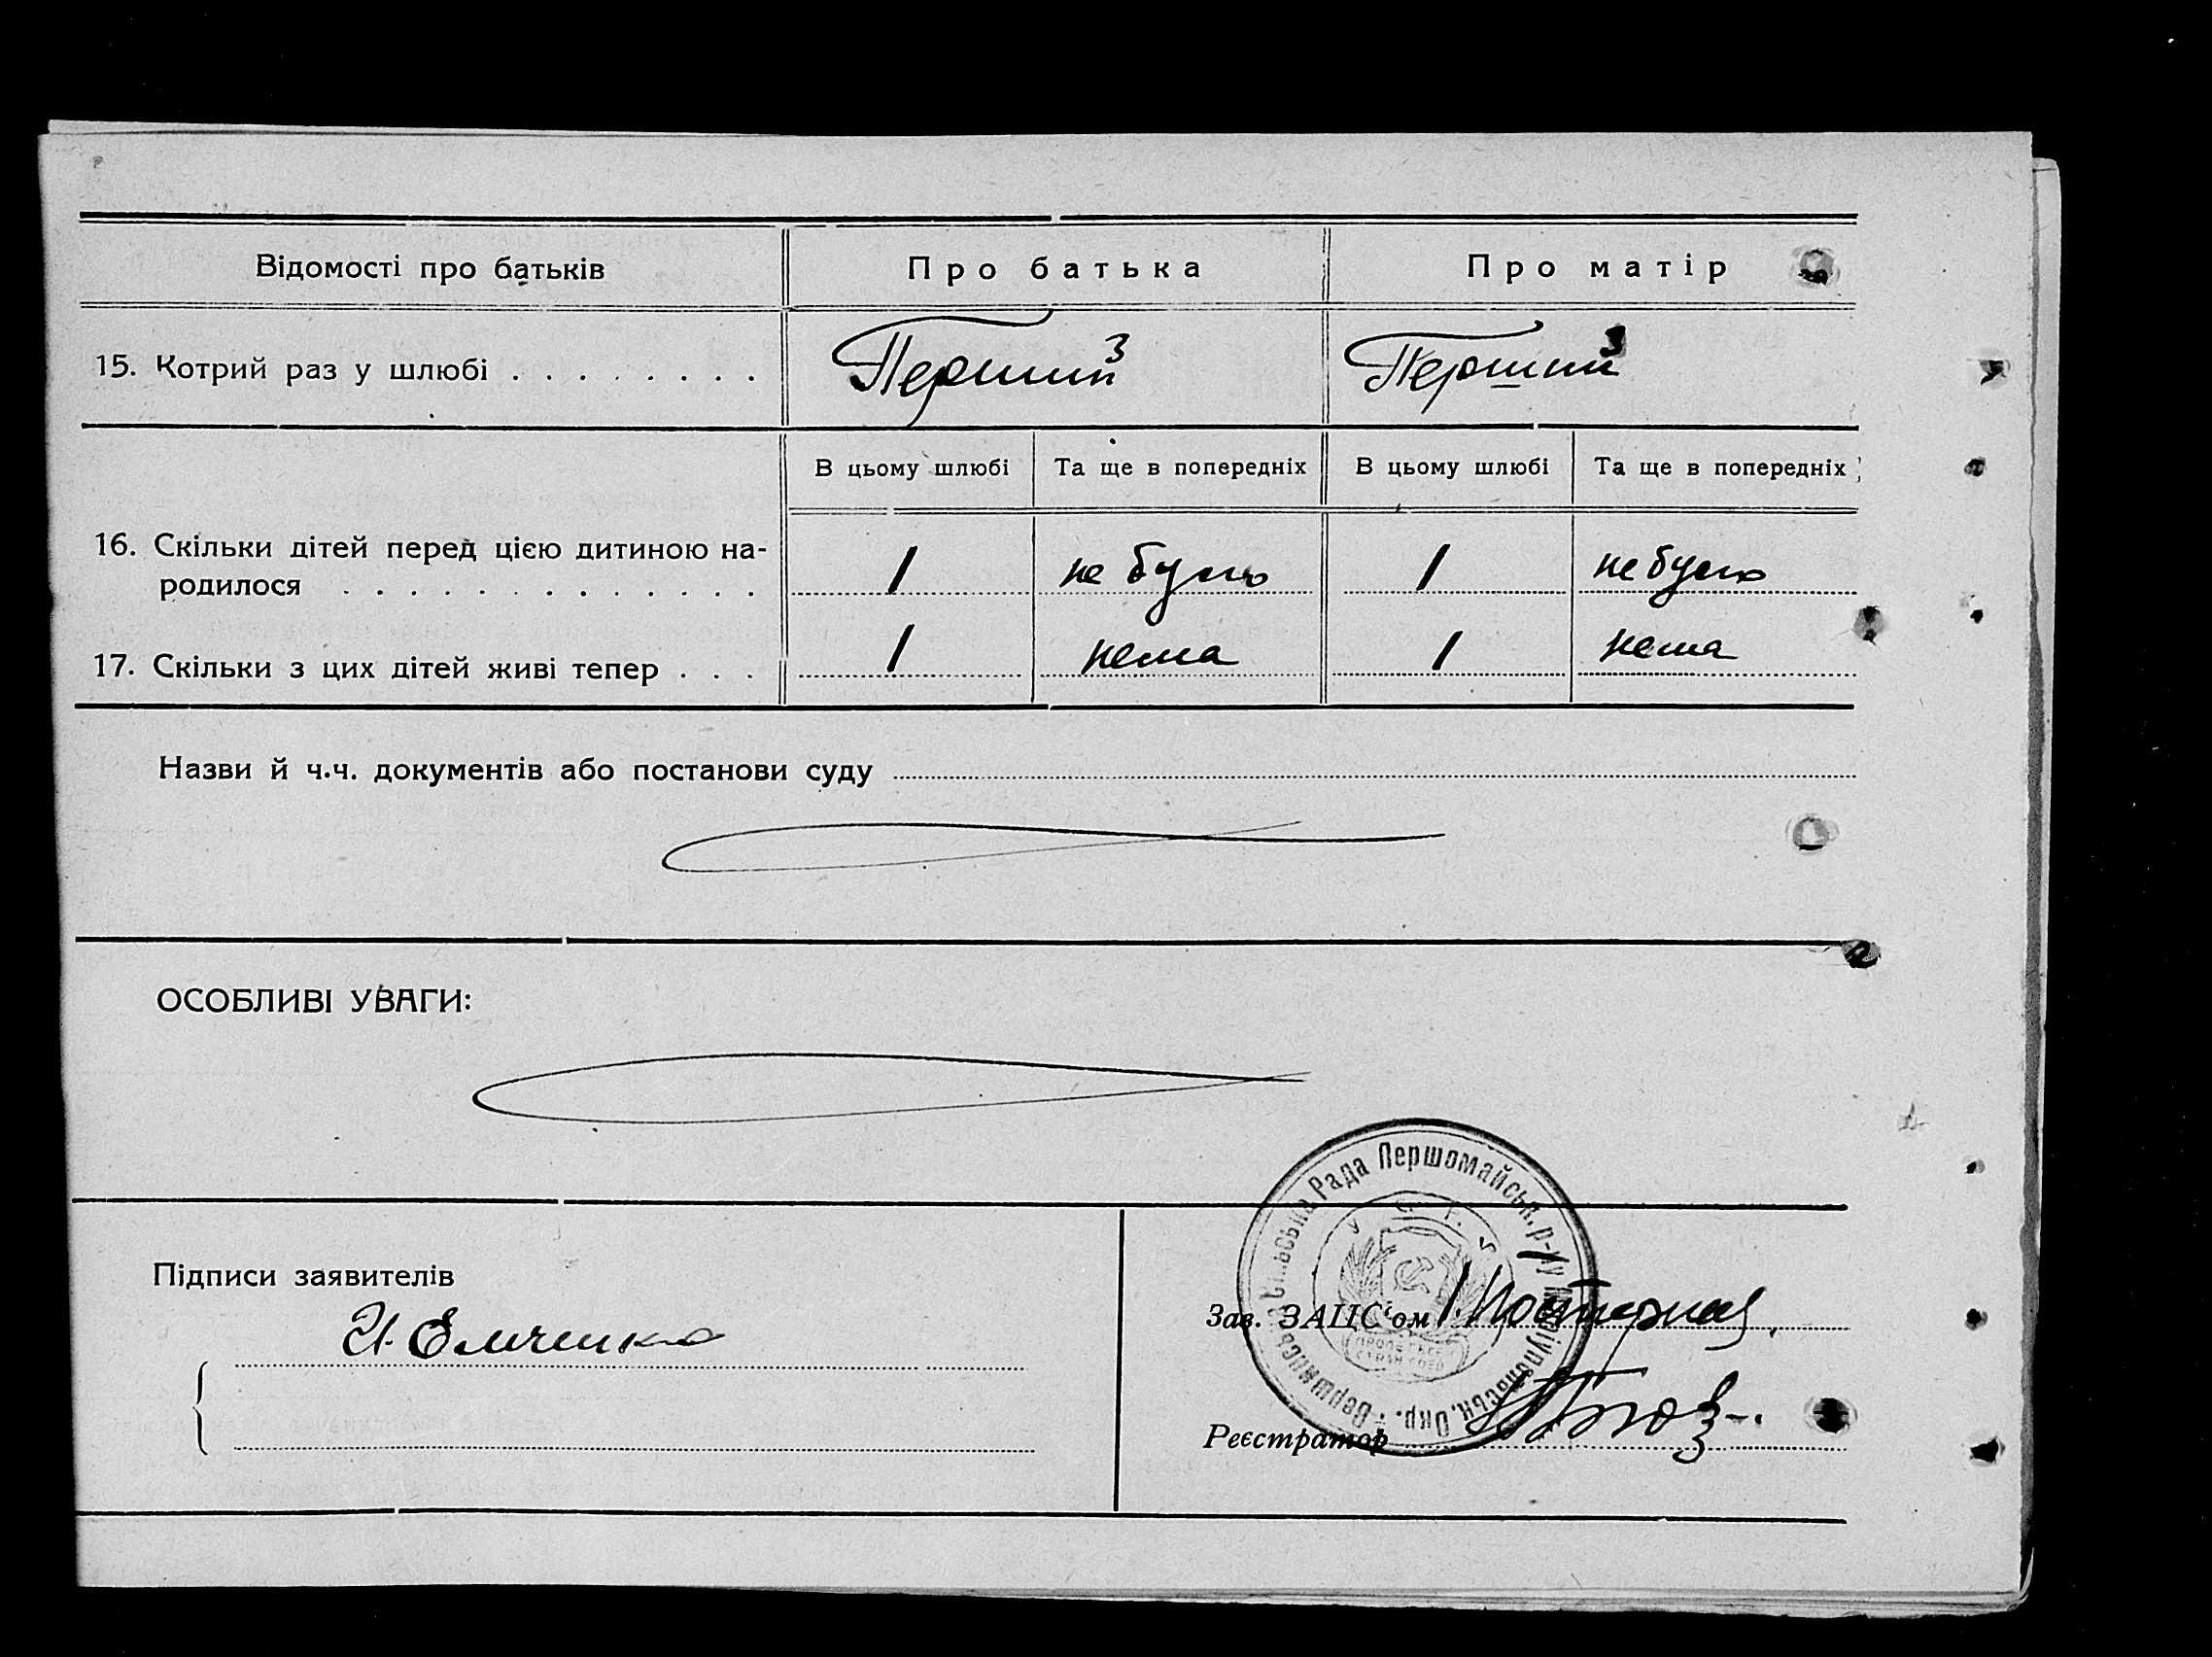 Відомості про батьків
Про батька
Про матір
15. Котрий раз у шлюбі . . . . . . . .
Перший
Перший
В цьому шлюбі
Та ще в попередніх
В цьому шлюбі
Та ще в попередніх
16. Скільки дітей перед цією дитиною на-
родилося . . . . . . . . . . . . .
1
не було
1
не було
17. Скільки з цих дітей живі тепер . . .
1
нема
1
нема
Назви й ч.ч. документів або постанови суду
ОСОБЛИВІ УВАГИ:
Рада Першомайськ. р-ну Маріупольськ. Окр.
Підписи заявителів
Зав. ЗАЦС'ом
Реєстратор